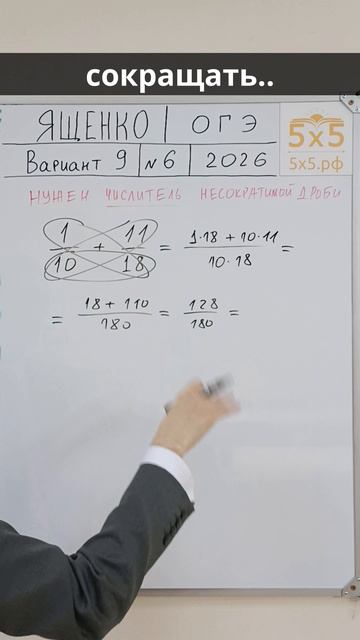 сокращать..
ЯЩЕНКО | ОГЭ
Вариант 9 | №6 | 2026
5x5
5x5.рф
НУЖЕН ЧИСЛИТЕЛЬ НЕСОКРАТИМОЙ ДРОБИ
1/10 + 11/18 = (1·18 + 10·11)/(10·18) =
= (18 + 110)/180 = 128/180 =